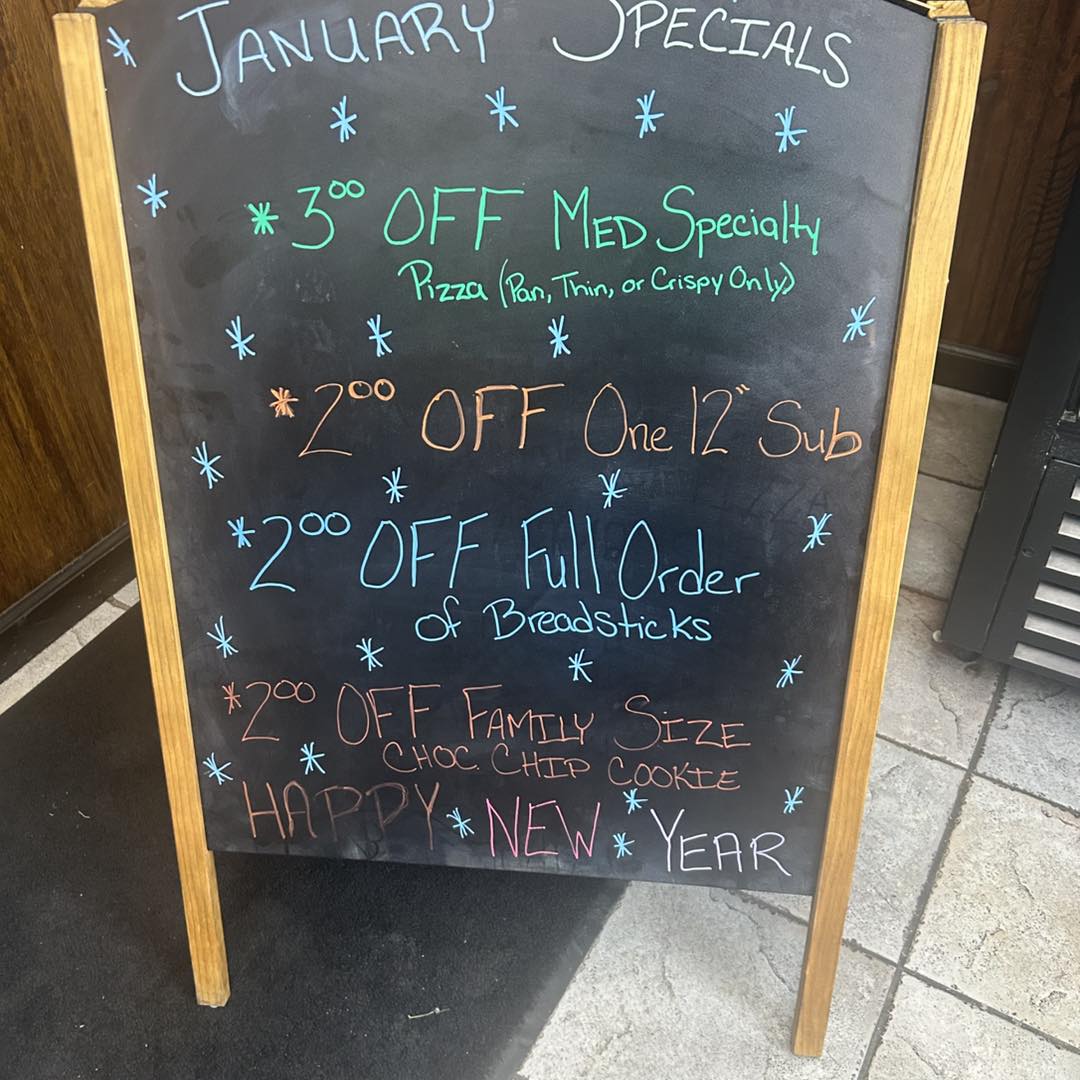 JANUARY SPECIALS
*3⁰⁰ OFF MED Specialty
Pizza (Pan, Thin, or Crispy Only)
*2⁰⁰ OFF One 12" Sub
*2⁰⁰ OFF Full Order
of Breadsticks
*2⁰⁰ OFF FAMILY SIZE
CHOC CHIP COOKIE
HAPPY * NEW * YEAR